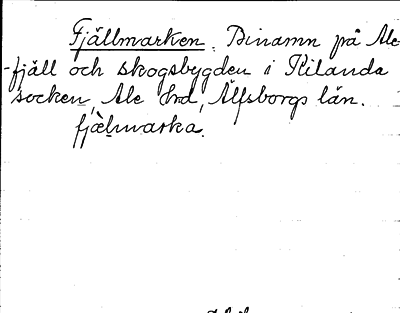 Fjällmarken. Binamn på Ale
-fjäll och skogsbygden i Kilanda
socken, Ale hrd, Älfsborgs län.
fjælmarka.